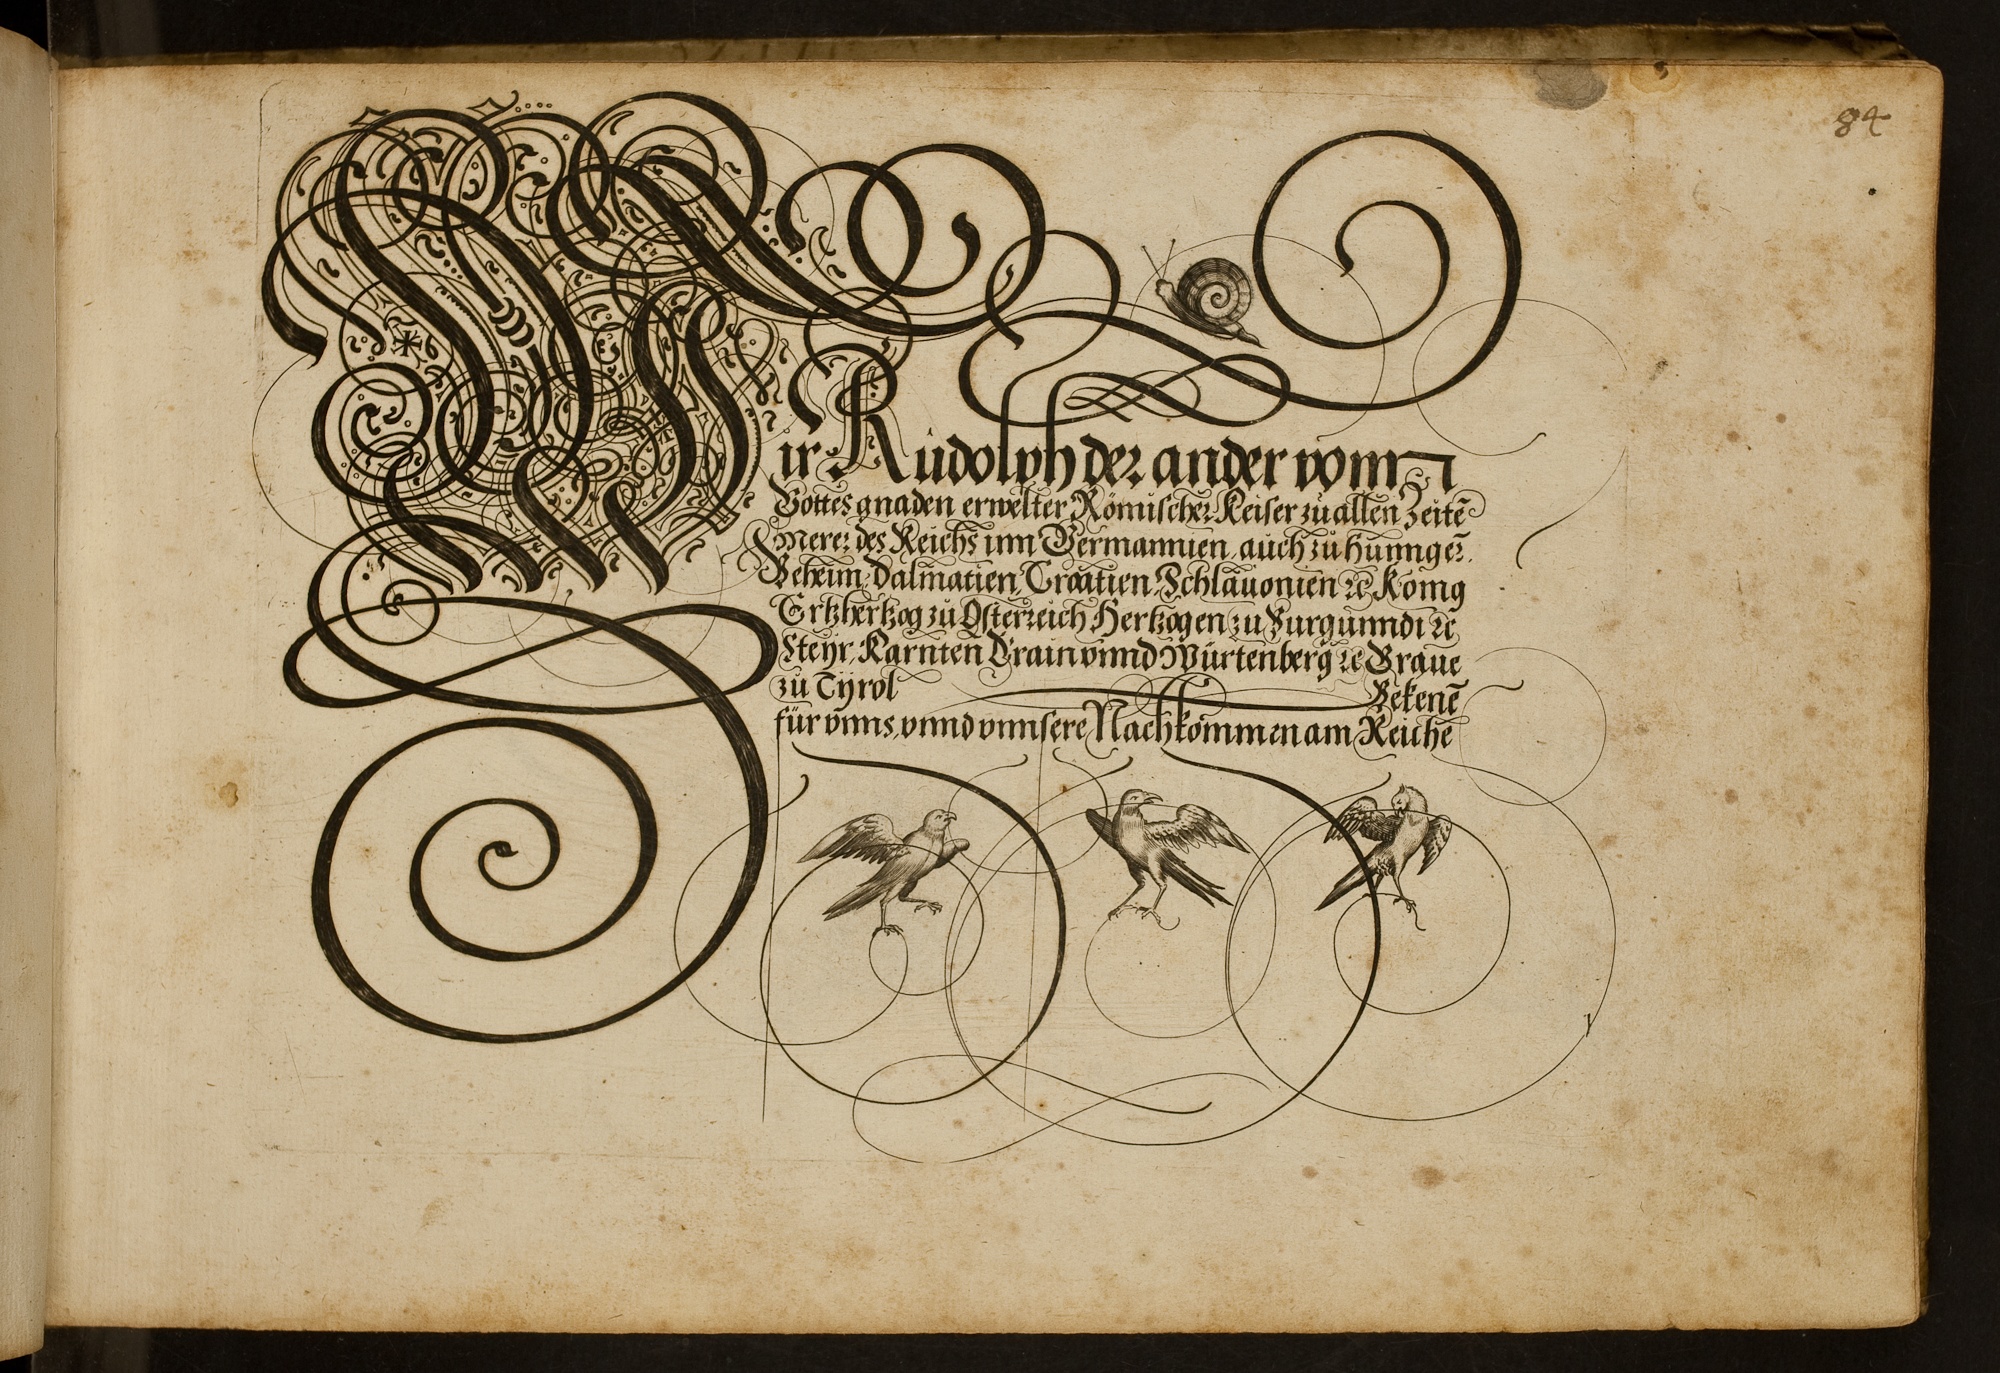 84
Wir Rudolph der ander vonn
Gottes gnaden erwelter Römischer Keiser zu allen Zeitē
Merer des Reichs inn Germannien, auch zu Hunnger̄.
Beheim, Dalmatien, Croatien, Schlauonien ꝛc König
Ertzhertzog zu Osterreich Hertzogen zu Burgunndi ꝛc
Steyr, Karnten Crain vnnd Würtenberg ꝛc Graue
zu Tyrol Bekenē
für vnns, vnnd vnnsere Nachkommen am Reiche